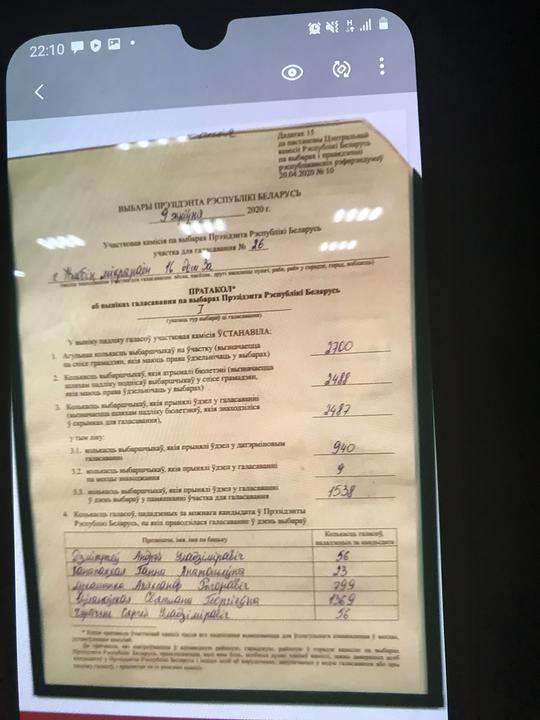 22:10
Дадатак 15
да пастановы Цэнтральнай
камісіі Рэспублікі Беларусь
па выбарах і правядзенні
рэспубліканскіх рэферэндумаў
20.04.2020 № 10
ВЫБАРЫ ПРЭЗІДЭНТА РЭСПУБЛІКІ БЕЛАРУСЬ
9 жніўня 2020 г.
Участковая камісія па выбарах Прэзідэнта Рэспублікі Беларусь
участка для галасавання № 26
мікрараён 16 дом 3а
ПРАТАКОЛ*
аб выніках галасавання па выбарах Прэзідэнта Рэспублікі Беларусь
I
(указаць тур выбараў ці галасавання)
У выніку падліку галасоў участковая камісія ЎСТАНАВІЛА:
1. Агульная колькасць выбаршчыкаў на ўчастку (вызначаецца
па спісе грамадзян, якія маюць права ўдзельнічаць у выбарах) 2700
2. Колькасць выбаршчыкаў, якія атрымалі бюлетэні (вызначаецца
шляхам падліку подпісаў выбаршчыкаў у спісе грамадзян,
якія маюць права ўдзельнічаць у выбарах) 2488
3. Колькасць выбаршчыкаў, якія прынялі ўдзел у галасаванні
(вызначаецца шляхам падліку бюлетэняў, якія знаходзіліся
ў скрынках для галасавання), 2487
у тым ліку:
3.1. колькасць выбаршчыкаў, якія прынялі ўдзел у датэрміновым
галасаванні 940
3.2. колькасць выбаршчыкаў, якія прынялі ўдзел у галасаванні
па месцы знаходжання 9
3.3. колькасць выбаршчыкаў, якія прынялі ўдзел у галасаванні
ў дзень выбараў у памяшканні ўчастка для галасавання 1538
4. Колькасць галасоў, пададзеных за кожнага кандыдата ў Прэзідэнты
Рэспублікі Беларусь, па якой праводзілася галасаванне ў дзень выбараў
Прозвішча, імя, імя па бацьку Колькасць галасоў,
пададзеных за кандыдата
Дзмітрыеў Андрэй Уладзіміравіч 56
Канапацкая Ганна Анатольеўна 23
Лукашэнка Аляксандр Рыгоравіч 799
Ціханоўская Святлана Георгіеўна 1369
Чэрачэнь Сяргей Уладзіміравіч 56